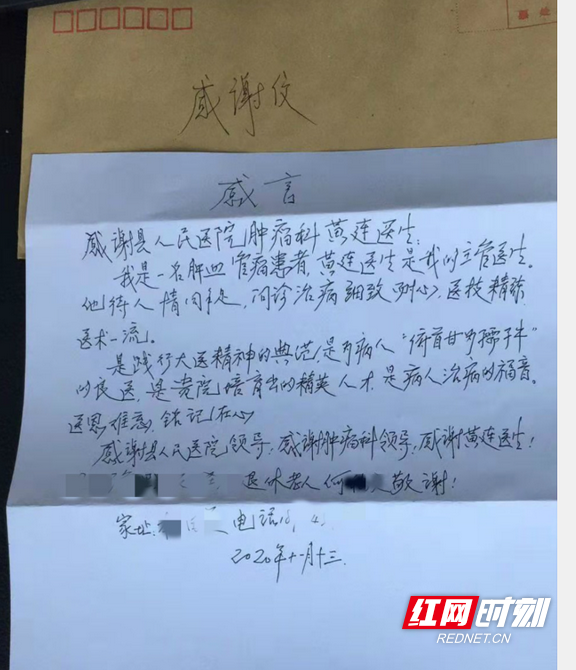 感谢信
感言
感谢县人民医院肿瘤科黄连医生:
我是一名肝血管病患者,黄连医生是我的主管医生。
他待人情同手足,问诊治病细致耐心,医技精莎
医术一流。
是践行大医精神的典范,是为病人“俯首甘为孺子牛”
的良医,是贵院培育出的精英人才,是病人治病的福音。
医恩难忘,铭记在心
感谢县人民医院领导,感谢肿瘤科领导,感谢黄连医生!
退休老人何 敬谢!
家址: 电话
2020年十一月十三.
红网时刻
REDNET.CN